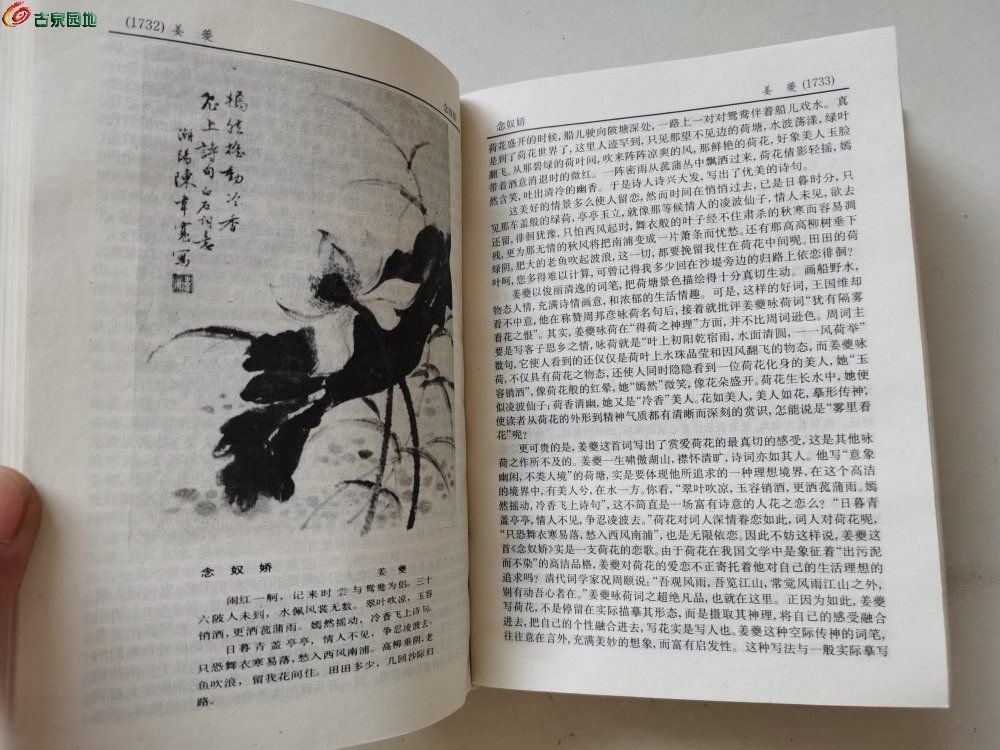 古泉园地
(1732) 姜 夔
念奴娇
嫣然摇动冷香
飞上诗句 白石词意
潮阳陈韦宽写
念 奴 娇
姜 夔
闹红一舸，记来时尝与鸳鸯为侣。三十
六陂人未到，水佩风裳无数。翠叶吹凉，玉容
销酒，更洒菰蒲雨。嫣然摇动，冷香飞上诗句。
日暮青盖亭亭，情人不见，争忍凌波去。
只恐舞衣寒易落，愁入西风南浦。高柳垂阴，老
鱼吹浪，留我花间住。田田多少，几回沙际归
路。
姜 夔(1733)
念奴娇
荷花盛开的时候，船儿驶向陂塘深处，一路上一对对鸳鸯伴着船儿戏水。真
是到了荷花世界了，这里人迹罕到，只见那望不见边的荷塘，水波荡漾，绿叶
翻飞。从那碧绿的荷叶间，吹来阵阵凉爽的风，那鲜艳的荷花，好象美人玉脸
带着酒意消退时的微红。一阵密雨从菰蒲丛中飘洒过来，荷花倩影轻摇，嫣
然含笑，吐出清冷的幽香。于是诗人诗兴大发，写出了优美的诗句。
这美好的情景多么使人留恋，然而时间在悄悄过去，已是日暮时分，只
见那车盖般的绿荷，亭亭玉立，就像那等候情人的凌波仙子，情人未见，欲去
还留，徘徊犹豫，只怕西风起时，舞衣般的叶子经不住肃杀的秋寒而容易凋
残，更为那无情的秋风将把南浦变成一片萧条而忧愁。还有那高高柳树垂下
绿阴，肥大的老鱼吹起波浪，这一切，都要挽留我住在荷花中间呢。田田的荷
叶呵，您多得难以计算，可曾记得我多少回在沙堤旁边的归路上依恋徘徊？
姜夔以俊丽清逸的词笔，把荷塘景色描绘得十分真切生动。画船野水，
物态人情，充满诗情画意，和浓郁的生活情趣。可是，这样的好词，王国维却
看不中意，他在称赞周邦彦咏荷名句后，接着就批评姜夔咏荷词“犹有隔雾
看花之恨”。其实，姜夔咏荷在“得荷之神理”方面，并不比周词逊色。周词主
要是写客子思乡之情，咏荷就是“叶上初阳乾宿雨，水面清圆，一一风荷举”
数句，它使人看到的还仅仅是荷叶上水珠晶莹和因风翻飞的物态，而姜夔咏
荷，不仅具有荷花之物态，还使人同时隐隐看到一位荷花化身的美人，她“玉
容销酒”，像荷花般的红晕，她“嫣然”微笑，像花朵盛开。荷花生长水中，她便
似凌波仙子；荷香清幽，她又是“冷香”美人。花如美人，美人如花，摹形传神，
使读者从荷花的外形到精神气质都有清晰而深刻的赏识，怎能说是“雾里看
花”呢？
更可贵的是，姜夔这首词写出了赏爱荷花的最真切的感受，这是其他咏
荷之作所不及的。姜夔一生啸傲湖山，襟怀清旷，诗词亦如其人。他写“意象
幽闲，不类人境”的荷塘，实是要体现他所追求的一种理想境界，在这个高洁
的境界中，有美人兮，在水一方。你看，“翠叶吹凉，玉容销酒，更洒菰蒲雨。嫣
然摇动，冷香飞上诗句”，这不简直是一场富有诗意的人花之恋么？“日暮青
盖亭亭，情人不见，争忍凌波去。”荷花对词人深情眷恋如此，词人对荷花呢，
“只恐舞衣寒易落，愁入西风南浦”，也是无限依恋。因此不妨这样说，姜夔这
首《念奴娇》实是一支荷花的恋歌。由于荷花在我国文学中是象征着“出污泥
而不染”的高洁品格，姜夔对荷花的爱恋不正寄托着他对自己的生活理想的
追求吗？清代词学家况周颐说：“吾观风雨，吾览江山，常觉风雨江山之外，
别有动吾心者在。”姜夔咏荷词之超绝凡品，也就在这里。正因为如此，姜夔
写荷花，不是停留在实际描摹其形态，而是摄取其神理，将自己的感受融合
进去，把自己的个性融合进去，写花实是写人也。姜夔这种空际传神的词笔，
往往意在言外，充满美妙的想象，而富有启发性。这种写法与一般实际摹写